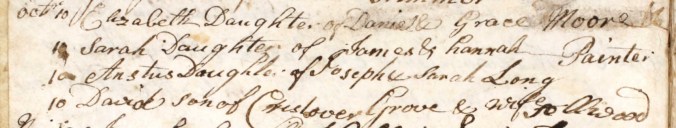 Oct 10 Elizabeth Daughter of Daniel & Grace Moore
10 Sarah Daughter of James & hannah Painter
10 Anstus Daughter of Joseph & Sarah Long
10 David son of Cristover Grove & wife Jollwood